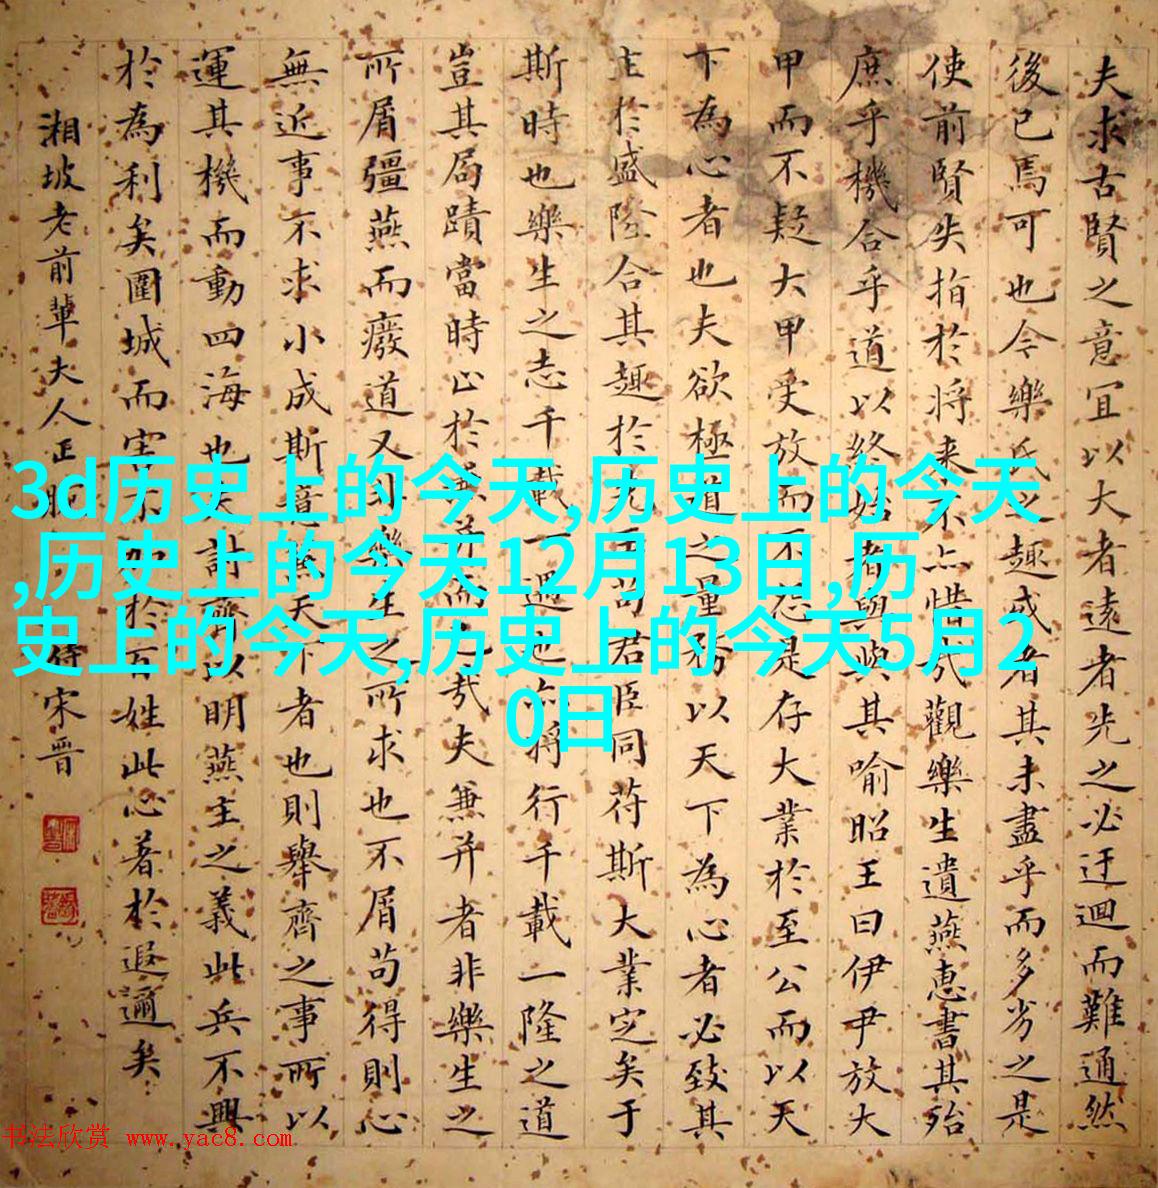 夫求古賢之意宜以大者遠者先之必迂迴而難通然
後已焉可也今樂氏之趣或者其未盡乎而多劣之是
使前賢失指於将来不亦惜哉觀樂生遺燕惠書其殆
庶乎機合乎道以終始者與其喻昭王曰伊尹放大
甲而不疑大甲受放而不怨是存大業於至公而以天
下為心者也夫欲極道之量務以天下為心者必致其
主於盛隆合其趣於先王苟君臣同苻斯大業定矣于
斯時也樂生之志千載一遇也亦将行千載一隆之道
豈其局蹟當時止於兼并而已哉夫兼并者非樂生之
所屑彊燕而廢道又非樂生之所求也不屑苟得則心
無近事不求小成斯意兼天下者也則舉齊之事所以
運其機而動四海也夫討齊以明燕主之義此兵不興
於為利矣圍城而害不加於百姓此心著於遐邇矣
湘坡老前輩夫人正
宋晋
3d历史上的今天,历史上的今天
,历史上的今天12月13日,历
史上的今天,历史上的今天5月2
0日
书法欣赏 www.yac8.com